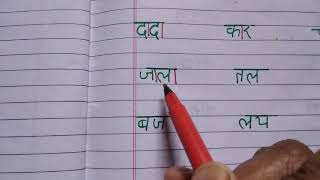 दादा कार
जाला तल
बज लय